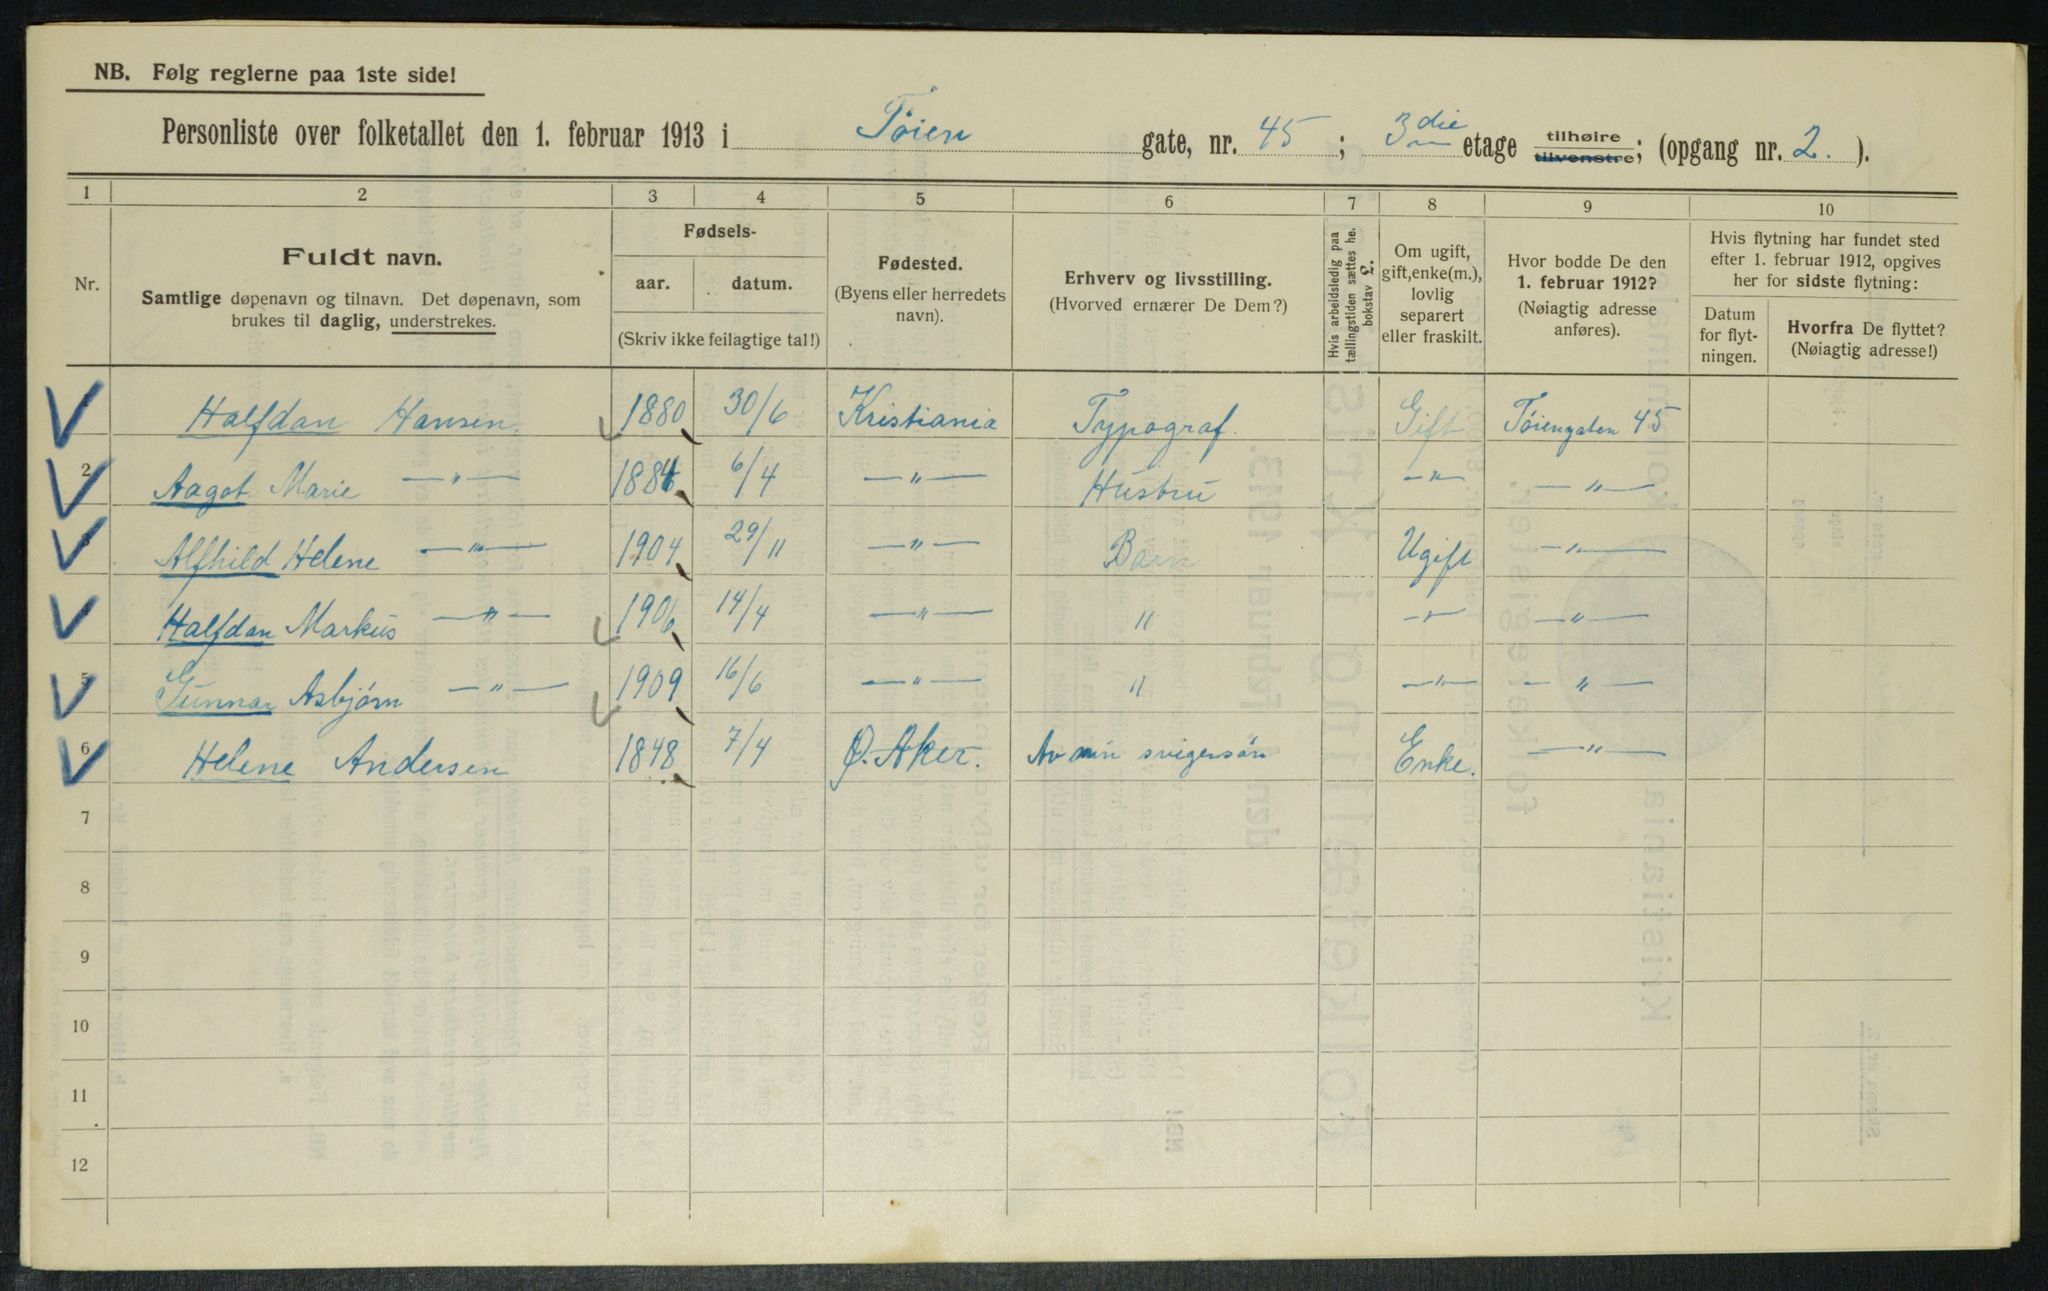 NB. Følg reglerne paa 1ste side!
Personliste over folketallet den 1. februar 1913 i Töien gate, nr. 45 ; 3die etage tilhøire tilvenstre; (opgang nr. 2. ).
1 2 3 4 5 6 7 8 9 10
Nr.
Fuldt navn.
Samtlige døpenavn og tilnavn. Det døpenavn, som
brukes til daglig, understrekes.
Fødsels-
aar. datum.
(Skriv ikke feilagtige tal!)
Fødested.
(Byens eller herredets
navn).
Erhverv og livsstilling.
(Hvorved ernærer De Dem?)
Hvis arbeidsledig paa
tællingstiden sættes he.
bokstav £.
Om ugift,
gift, enke(m.),
lovlig
separert
eller fraskilt.
Hvor bodde De den
1. februar 1912?
(Nøiagtig adresse
anføres).
Hvis flytning har fundet sted
efter 1. februar 1912, opgives
her for sidste flytning:
Datum
for flyt-
ningen.
Hvorfra De flyttet?
(Nøiagtig adresse!)
Halfdan Hansen. 1880 30/6 Kristiania Typograf. Gift Töiengaten 45
2 Aagot Marie —"— 1884 6/4 —"— Hustru —"— —"—
3 Alfhild Helene —"— 1904 29/11 —"— Barn Ugift —"—
4 Halfdan Markus —"— 1906 14/4 —"— " —"— —"—
5 Gunnar Asbjörn —"— 1909 16/6 —"— " —"— —"—
6 Helene Andersen 1848 7/4 Ø. Aker. Av min svigersön Enke. —"—
7
8
9
10
11
12